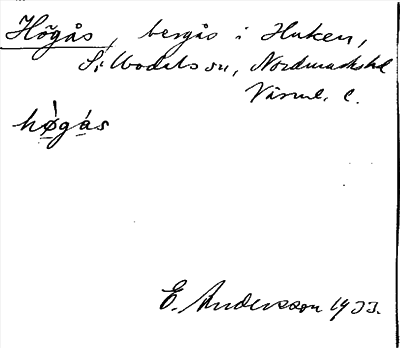 Högås, bergås i Huken,
S: Ullvodals sn, Nordmarks hd
Värml. l.
hǿgás
E. Andersson 1933.